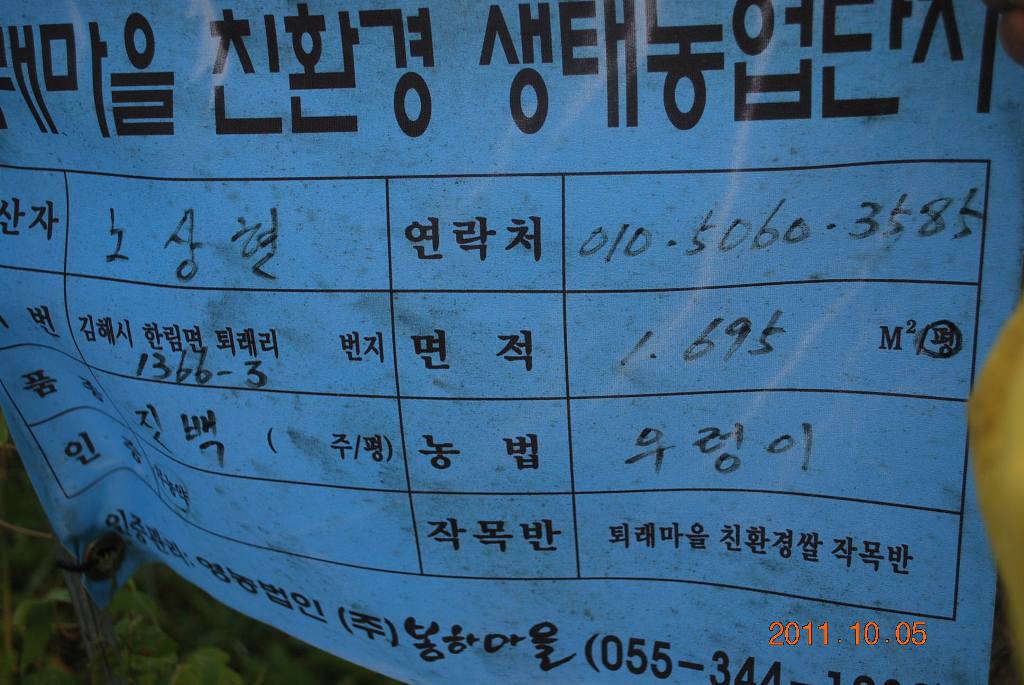 래마을 친환경 생태농업단지
산자 노상현 연락처 010.5060.3585
번 김해시 한림면 퇴래리 1366-3 번지 면적 1.695 M²/평
품종 진백 ( 주/평) 농법 우렁이
인증 작목반 퇴래마을 친환경쌀 작목반
인증관리:영농법인 (주)봉하마을 (055-344-
2011.10.05